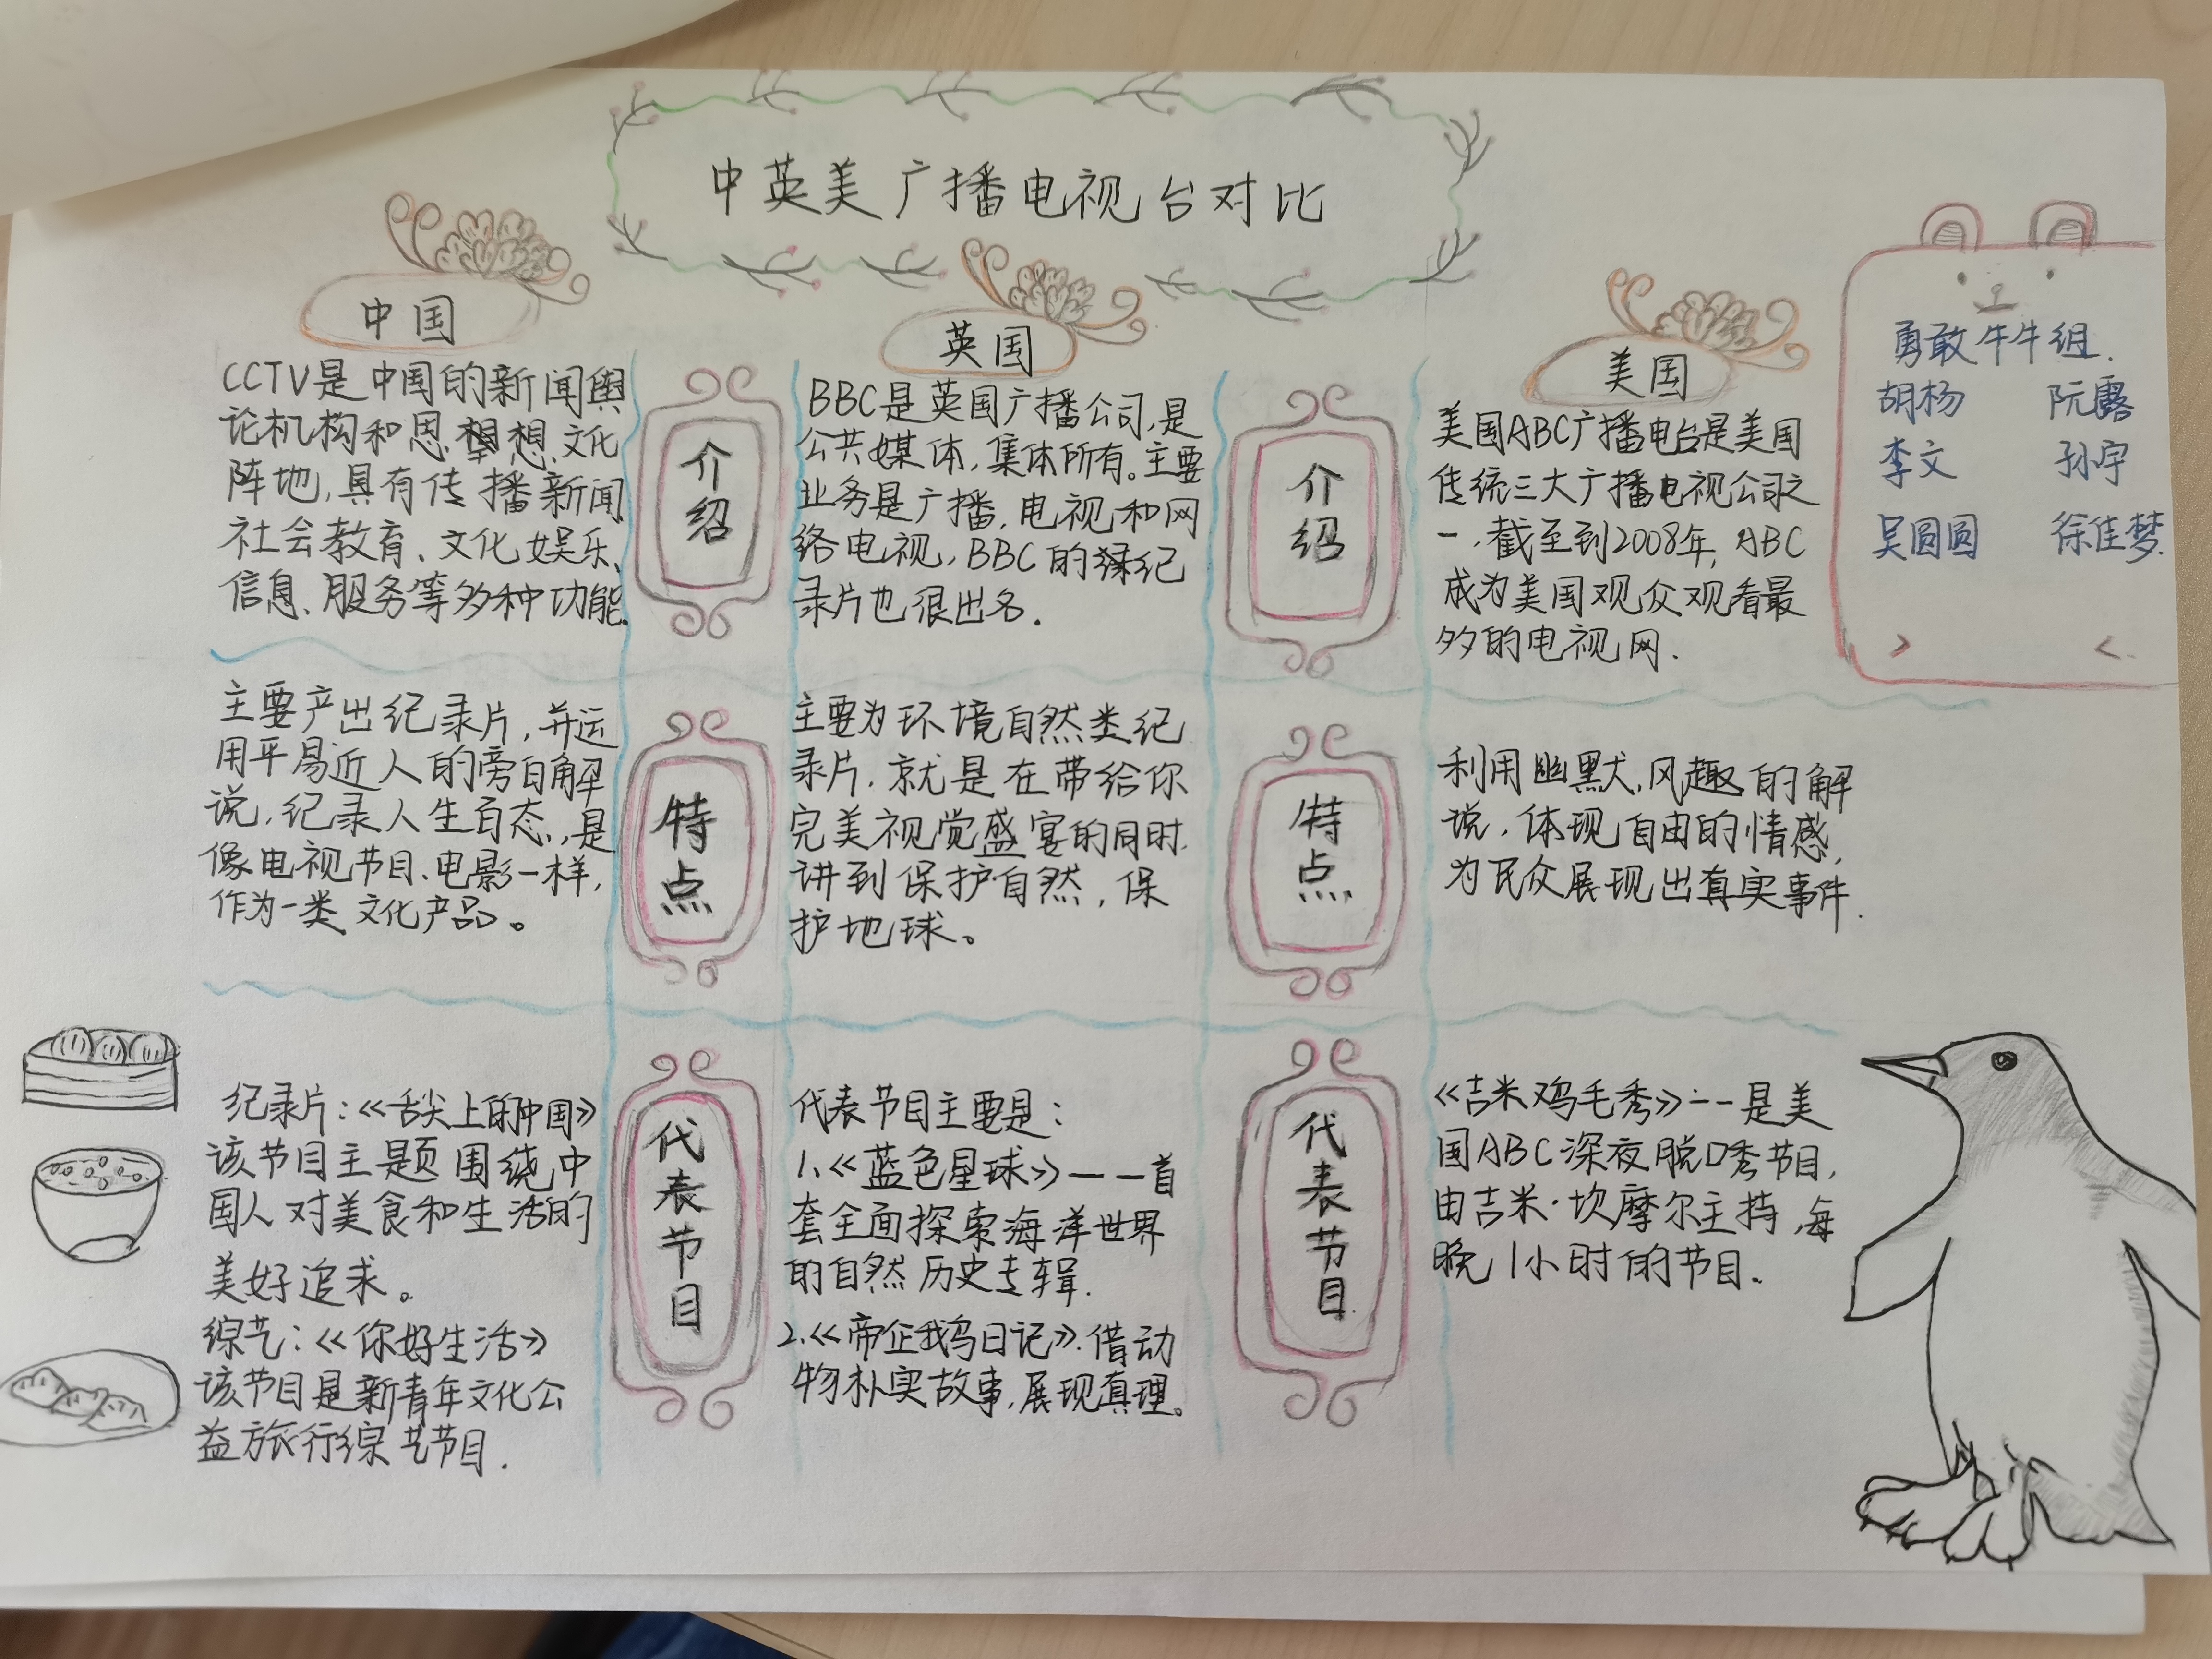 中英美广播电视台对比
中国
CCTV是中国的新闻舆
论机构和思想文化
阵地,具有传播新闻
社会教育、文化娱乐、
信息、服务等多种功能.
介绍
英国
BBC是英国广播公司,是
公共媒体,集体所有。主要
业务是广播,电视和网
络电视,BBC的纪
录片也很出名.
介绍
美国
美国ABC广播电台是美国
传统三大广播电视公司之
一,截至到2008年,ABC
成为美国观众观看最
多的电视网.
勇敢牛牛组.
胡杨 阮露
李文 孙宇
吴圆圆 徐佳梦.
主要产出纪录片,并运
用平易近人的旁白解
说,纪录人生百态,是
像电视节目、电影一样,
作为一类文化产品。
特点
主要为环境自然类纪
录片.就是在带给你
完美视觉盛宴的同时.
讲到保护自然,保
护地球。
特点
利用幽默,风趣的解
说,体现自由的情感,
为民众展现出真实事件.
纪录片:《舌尖上的中国》
该节目主题围绕中
国人对美食和生活的
美好追求。
综艺:《你好生活》
该节目是新青年文化公
益旅行综艺节目.
代表节目
代表节目主要是:
1.《蓝色星球》——首
套全面探索海洋世界
的自然历史专辑.
2.《帝企鹅日记》.借动
物朴实故事,展现真理。
代表节目
《吉米鸡毛秀》——是美
国ABC深夜脱口秀节目,
由吉米·坎摩尔主持,每
晚1小时的节目.